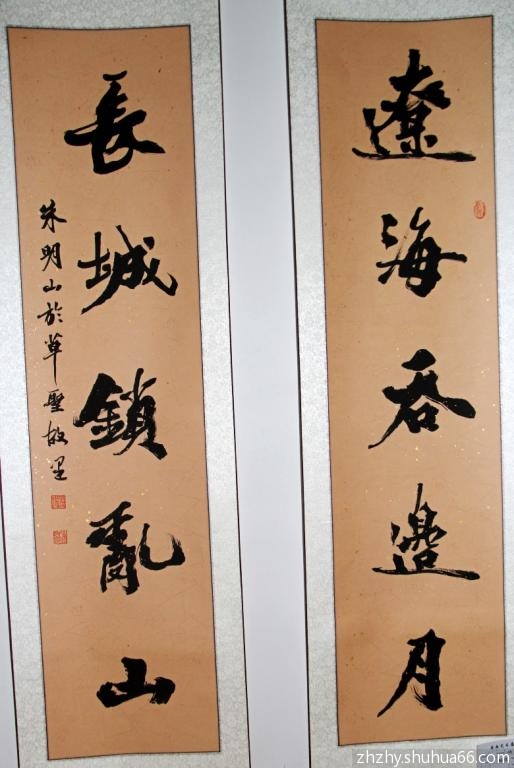 遼海吞邊月
長城鎖亂山
朱明山於草聖故里
zhzhyshuhua66.com